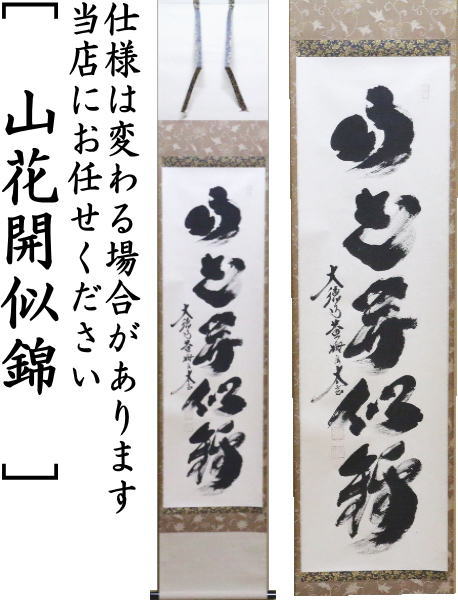 仕様は変わる場合があります
当店にお任せください
[山花開似錦]
山花開似錦
山花開似錦